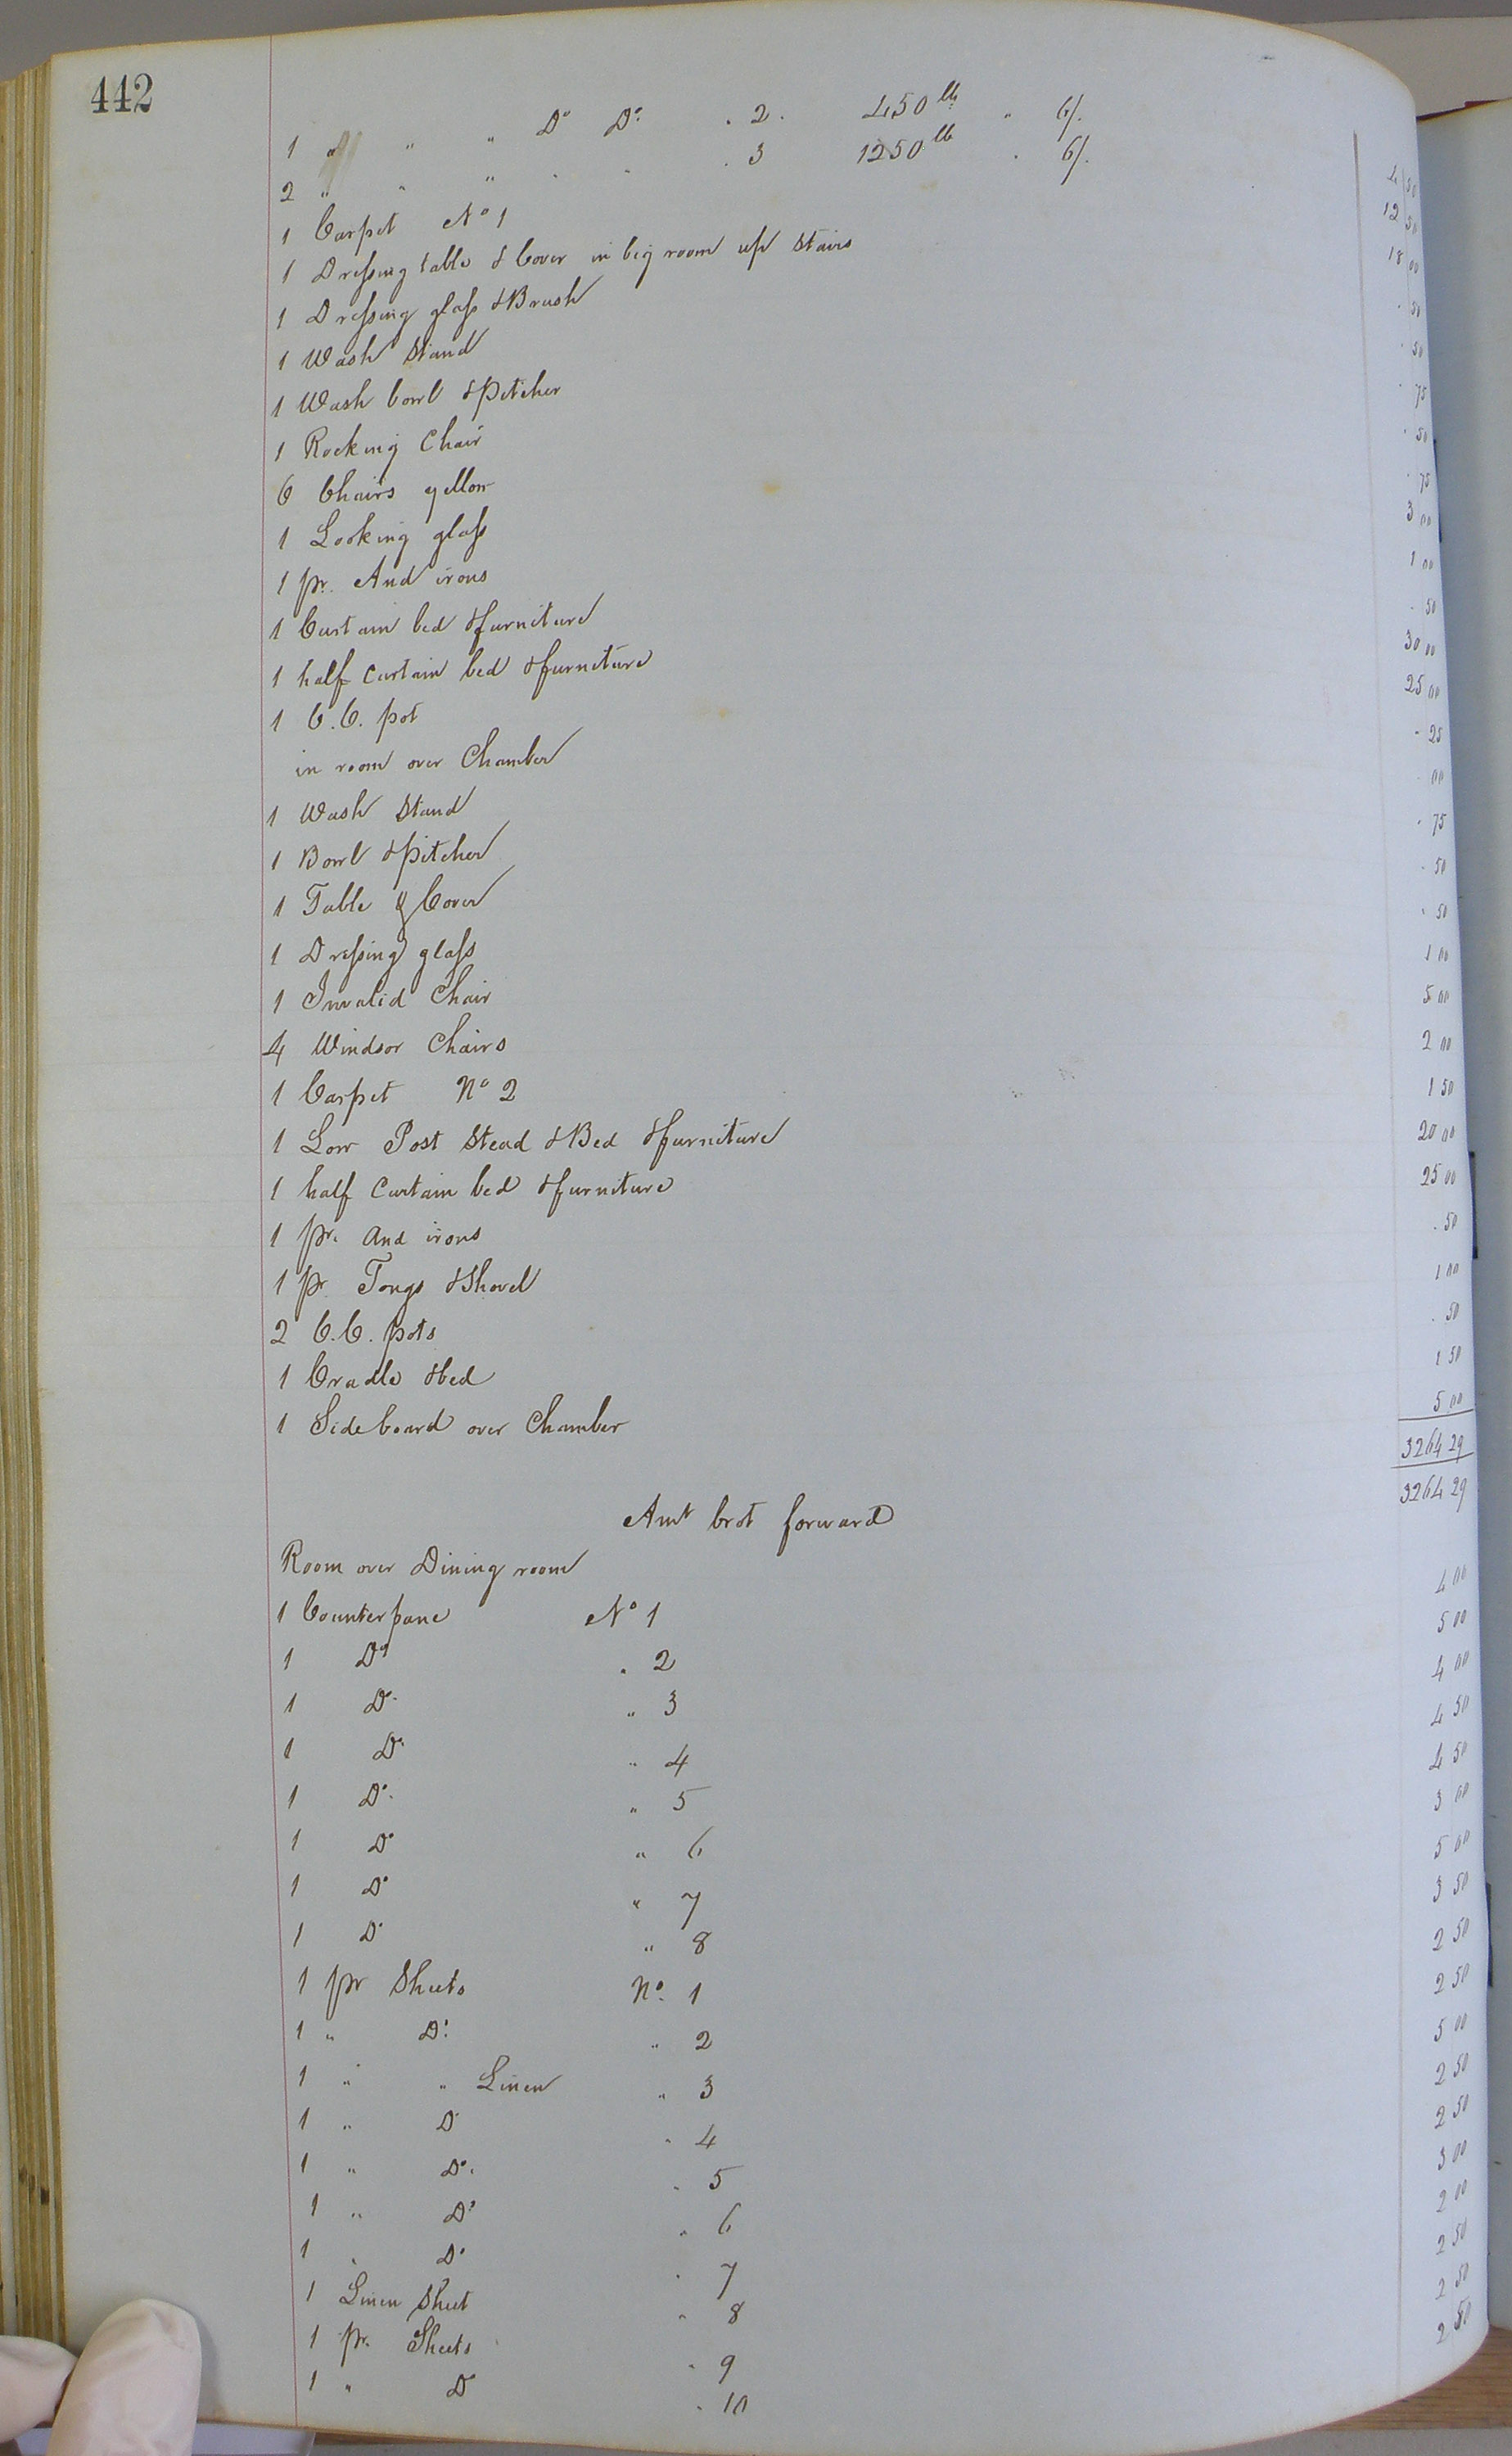 442
1 " " " Do Do. " 2. 450 lbs " 6/. 4 50
2 " " " " " " 3 1250 lb " 6/. 12 50
1 Carpet No 1 18 00
1 Dressing table & Cover in big room up Stairs " 50
1 Dressing glass & Brush " 50
1 Wash Stand " 75
1 Wash bowl & Pitcher " 50
1 Rocking Chair " 75
6 Chairs yellow 3 00
1 Looking glass 1 00
1 pr. And irons " 50
1 Curtain bed & furniture 30 00
1 half Curtain bed & furniture 25 00
1 C.C. pot " 25
in room over Chamber " 00
1 Wash Stand " 75
1 Bowl & Pitcher " 50
1 Table & Cover " 50
1 Dressing glass 1 00
1 Invalid Chair 5 00
4 Windsor Chairs 2 00
1 Carpet No 2 1 50
1 Low Post Stead & Bed & furniture 20 00
1 half Curtain bed & furniture 25 00
1 pr. And irons " 50
1 pr. Tongs & Shovel 1 00
2 C.C. pots " 50
1 Cradle & bed 1 50
1 Sideboard over Chamber 5 00
3264 29
Amt brot forward 3264 29
Room over Dining room
1 Counterpane No 1 4 00
1 Do " 2 5 00
1 Do. " 3 4 00
1 Do. " 4 4 50
1 Do. " 5 4 50
1 Do " 6 3 00
1 Do " 7 5 00
1 Do " 8 3 50
1 pr Sheets No. 1 2 50
1 " Do. " 2 2 50
1 " " Linen " 3 5 00
1 " Do " 4 2 50
1 " Do. " 5 2 50
1 " Do " 6 3 00
1 " Do " 7 2 00
1 Linen Sheet " 8 2 50
1 pr. Sheets " 9 2 50
1 " Do " 10 2 50